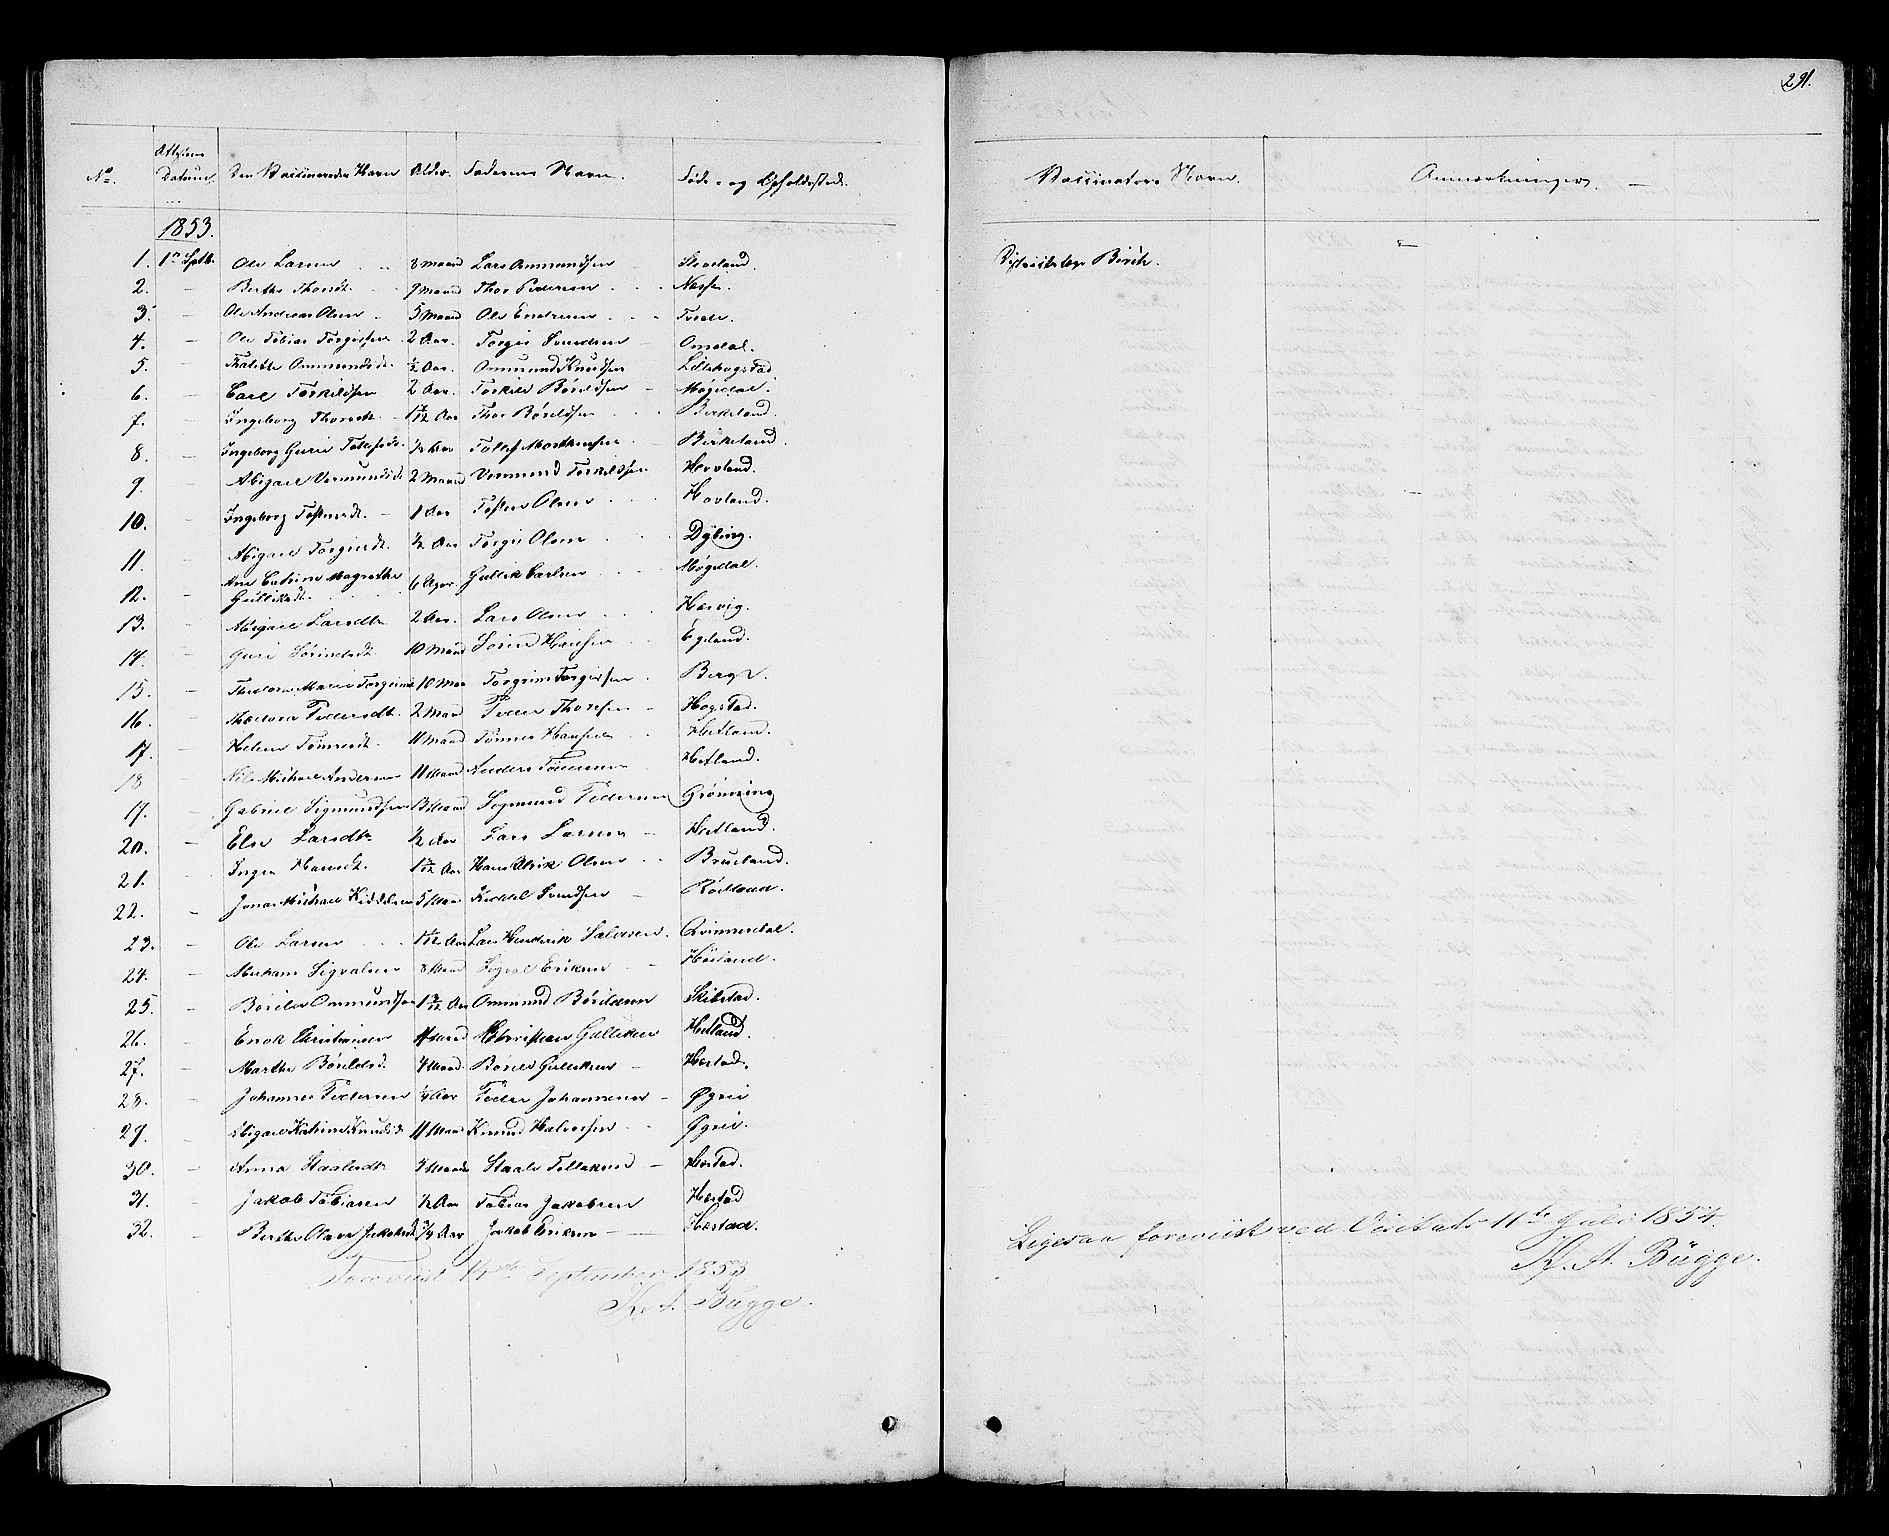 291.
No. Attestens Datum. Den Vaccineredes Navn Alder. Faderens Navn. Føde- og Opholdssted. Vaccinators Navn. Anmærkninger.
1853.
1. 1n Sptb. Ole Larsen 8 Maaned Lars Ommundsen Skreland. Districtslæge Birch.
2. — Berthe Thorsdt. 9 Maaned Thor Pedersen Nesse.
3. — Ole Andreas Olsen 5 Maaned Ole Endresen Tveite.
4. — Ole Tobias Torgersen 2 Aar. Torger Svendsen Omdal.
5. — Ommundsdt. ½ Aar. Ommund Knudsen Lillehogstad
6. — Carl Torkildsen 2 Aar. Torkild Bårildsen Møgedal.
7. — Ingeborg Thorsdt. Aar Thor Bårildsen Birkeland.
8. — Ingeborg Guri Tollefsdt. ½ Aar Tollef Mortensen Birkeland.
9. — Abigael Vermundsdt. 2 Maaned Vermund Torkildsen Hovland.
10. — Ingeborg Tostensdt. 1 Aar Tosten Olsen Hovland.
11. — Abigael Torgersdt. ½ Aar Torger Olsen Dybing.
12. — Ane Catrine Magrethe Gulliksdt. 6 Ager. Gullik Carlsen Møgedal.
13. — Abigael Larsdtr. 2 Aar. Lars Olsen Hæsvig.
14. — Guri Sörensdt. 10 Maaned Sören Hansen Egeland.
15. — Theodora Marie Torgrimsd. 10 Maa Torgrim Torgersen Berge.
16. — Theodora Pedersdtr. 2 Maaned Peder Thorsen Hogstad.
17. — Helene Tönnesdt. 11 Maaned Tönnes Hansen Hetland.
18 — Nils Michael Andersen 11 Maaned Anders Tönnesen Hetland.
17. — Gabriel Sigmundsen 13 Maaned Sigmund Pedersen Grönning
20. — Else Larsdtr ½ Aar Lars Larsen Hetland.
21. — Inger Hansdt. Aar Hans Alrik Olsen Brueland.
22. — Jonas Michael Kiddelsen 5 Maan Kiddel Svendsen
23. — Ole Larsen Aar Lars Henderik Salvesen. Qvinnesdal.
24. — Abraham Sigvalsen 8 Maaned Sigval Eriksen
25. — Bårild Ommundsen Aar Ommund Bårildsen Skibstad.
26. — Enok Christiansen 11 Maaned Christian Gulliksen Hetland.
27. — Marthe Bårildsd. 4 Maaned. Bårild Gulliksen Hæstad.
28. — Johannes Pedersen ¼ Aar Peder Johannesen Øgrei
29. — Abigael Katrine Knudsdt. 11 Maaned Knud Halvorsen Øgrei.
30. — Anna Staalesdtr 4 Maaned Staale Tollaksen Hæstad.
31. — Jakob Tobiasen ½ Aar Tobias Jakobsen Hæstad
32. — Berthe Olava Jakobsdt. ¾ Aar Jakob Eriksen Hæstad.
Foreviist 14de September 1853
K. A. Bugge.
Ligesaa foreviist ved Visitats 11te Juli 1854.
K. A. Bügge.